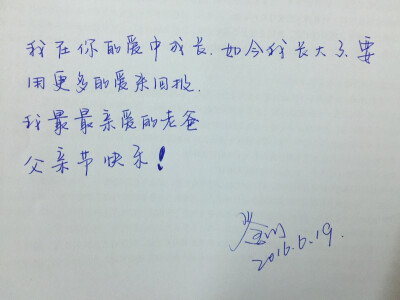 我在你的爱中成长.如今我长大了要
用更多的爱来回报.
我最最亲爱的老爸
父亲节快乐!
2016.6.19.